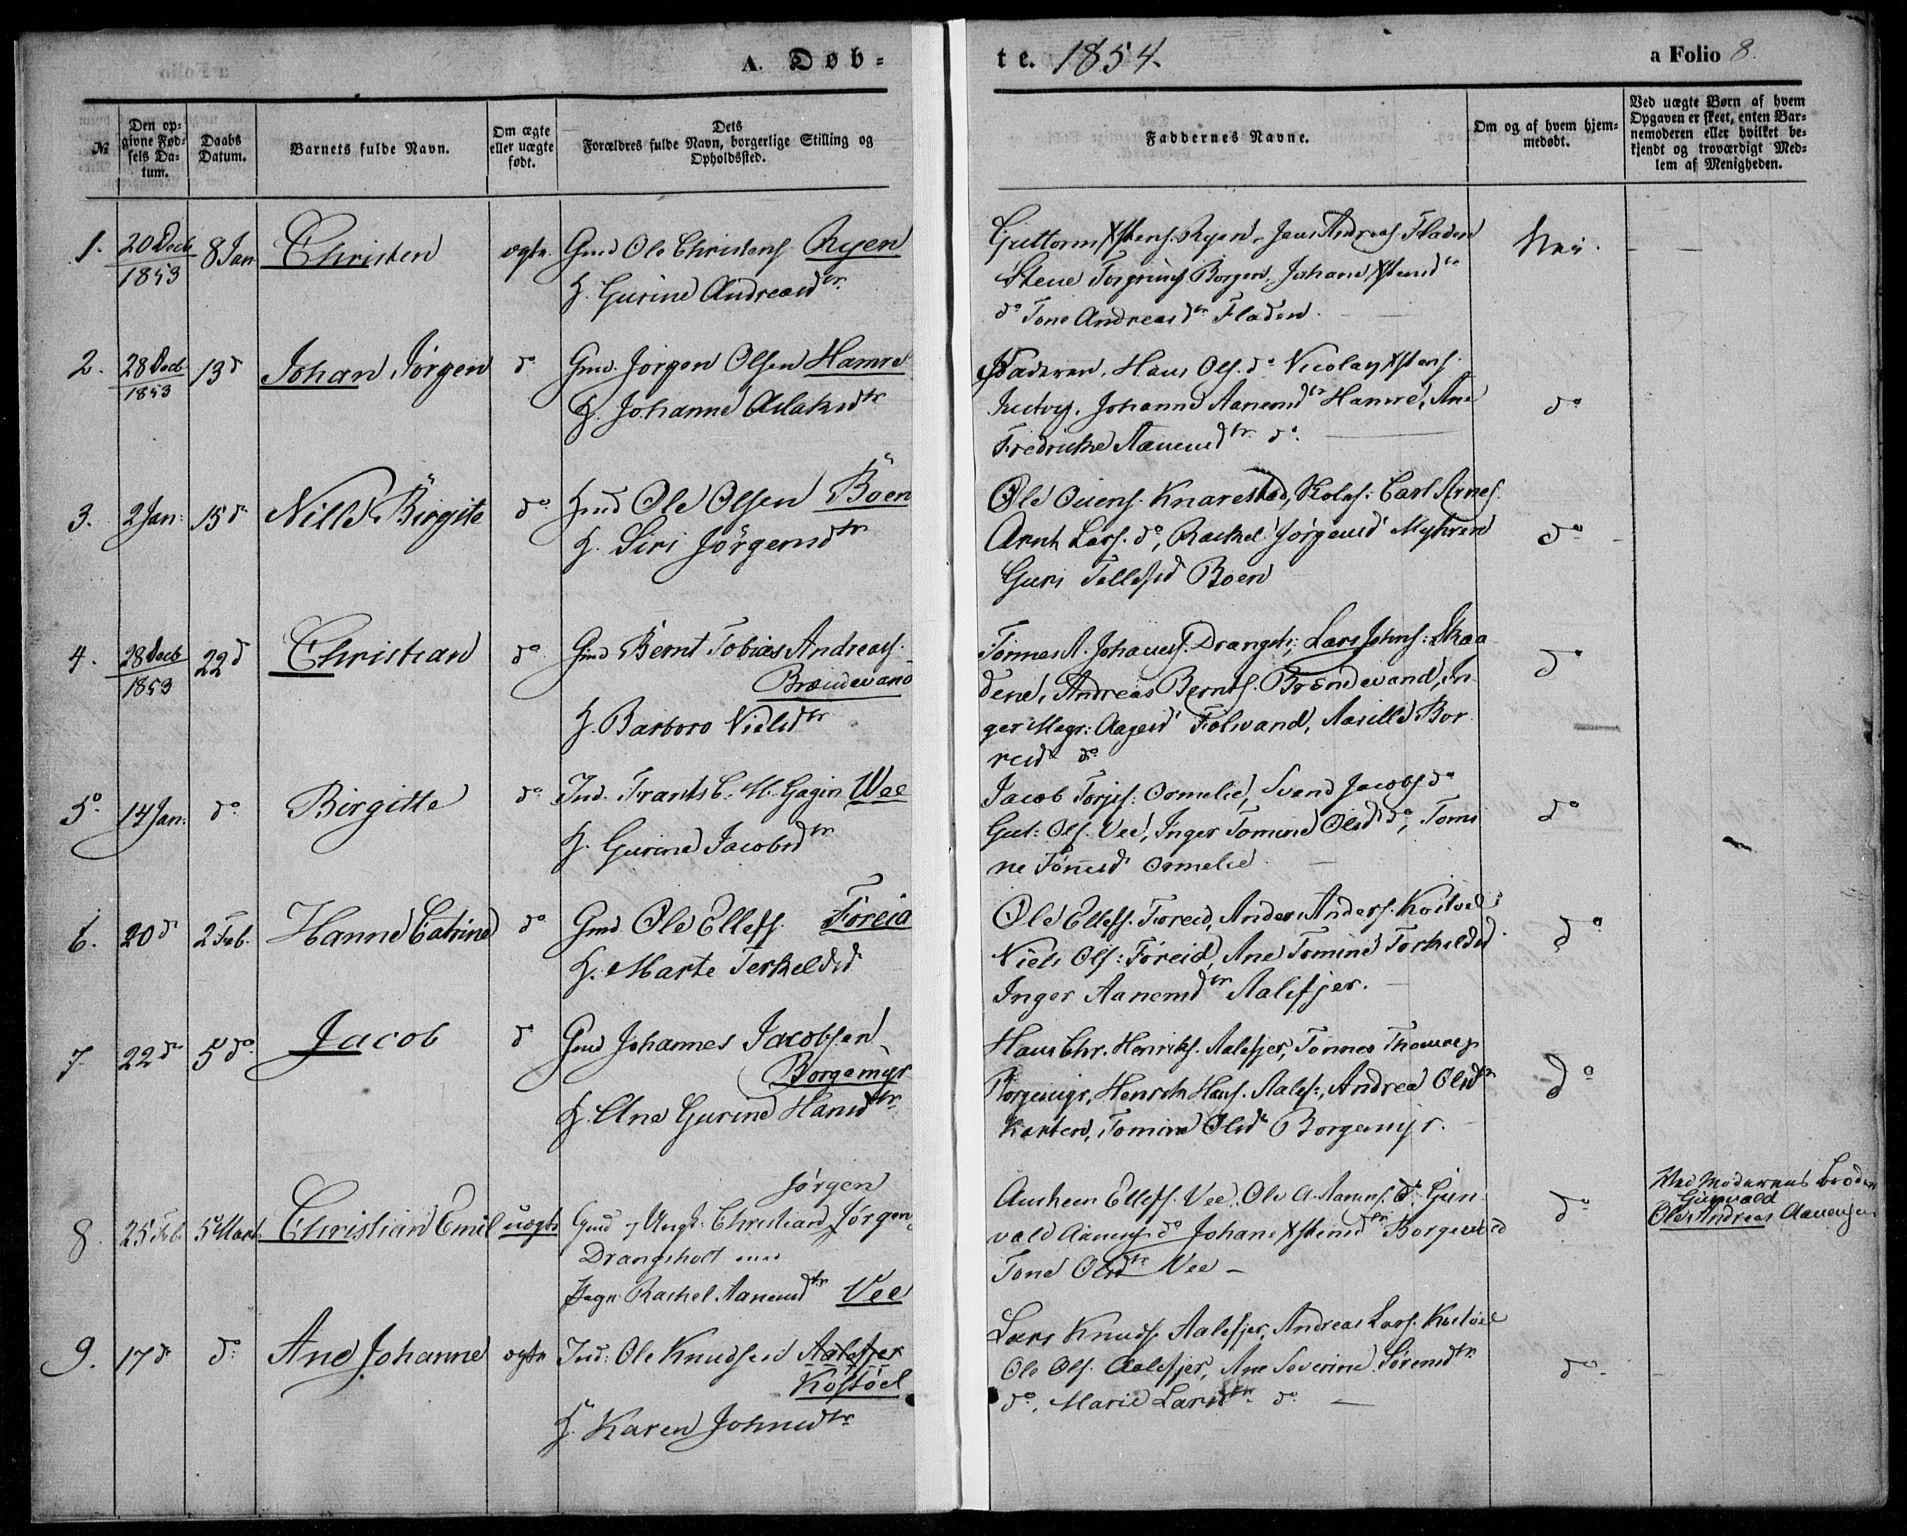 A. Døbte. 1854.
a Folio 8.
№
Den opgivne Fødsels Datum.
Daabs Datum.
Barnets fulde Navn.
Om ægte eller uægte født.
Dets Forældres fulde Navn, borgerlige Stilling og Opholdssted.
Faddernes Navne.
Om og af hvem hjemmedøbt.
Ved uægte Børn af hvem Opgaven er skeet, enten Barnemoderen eller hvilket bekjendt og troværdigt Medlem af Menigheden.
1. 20 Decb 1853 8 Jan Christen ægte Gmd Ole Christens. Ryen
H. Gurine Andreasdtr
Guttorm Xstens. Ryen, Jens Andreas. Fladen
Stene Torgrims. Borgen, Johane Xstensdtr
do Tone Andreasdtr Fladen.
Nei.
2. 28 Decb 1853 13 d Johan Jörgen do Gmd. Jörgen Olsen Hamre
H. Johanne Aslaksdtr
Faderen, Hans Ols. do Nicolay Xstens.
Johanne Aanensdtr Hamre, Ane
Fredrikke Aanensdtr do.
do
3. 2 Jan: 15 d. Nille Birgite do Gmd Ole Olsen Böen
H. Siri Jörgensdtr
Ole Ouens. Knarestad, Skoles: Carl Arnes.
Arnt Lars. do, Rachel Jørgensd Myhren
Guri Tellefsd Boen
do
4. 28 Decb 1853 22 d Christian do Gmd Bernt Tobias Andreas.
Brændevand
H. Barboro Nielsdtr
Tönnes A. Johanes. Drangsh:, Lars Johns: Skaa
dene, Andreas Bernts. Brændevand, In
ger Magr: Aagesd Folvand, Aasille Bor
resd do
do
5. 14 Jan: do Birgitte do Ind. Frants C. M. Gagin Wee
H. Gurine Jacobsdtr
Jacob Torjes: Ormelie, Svend Jacobs do
Gut: Ols. Vee, Inger Tomine Olsd do, Tomi
ne Tønnesd Ormelie
do
6. 20 d 2 Feb. Hanne Catrine do Gmd Ole Ellefs. Föreid
H. Marte Terkeldsd
Ole Ellefs. Føreid, Anders Anders. Kostöel
Niels Ols: Føreid, Ane Tomine Torkeldsd
Inger Aanensdtr Aalefjer.
do
7. 22 d 5 do Jacob d Gmd Johannes Jacobsen
Borgemyr
H. Ane Gurine Hansdtr
Hans Chr. Henriks. Aalefjer, Tönnes Thomas.
Borgemyr, Henrik Hans. Aalef:, Andrea Olsdtr
Kosten, Tomine Olsd Borgemyr.
do
8. 25 Feb. 5 Marts Christian Emil uægte Jørgen
Gmd & Ungk. Christian Jörgen
Drangsholt med
Pige Rachel Aanensdtr Vee
Anstein Ellefs. Vee, Ole A. Aanens. do Gun
vald Aanens. do Johane Xstensdtr Borgevold
Tone Olsdtr Vee
do
Ved Moderens broder
Gunvald
Ole Andreas Aanensen
9. 17 d do Ane Johanne ægte Ind: Ole Knudsen Aalefjer
Kostöel
H. Karen Johnsdtr
Lars Knuds. Aalefjer, Andreas Lars. Kostöel
Ole Ols. Aalefjer, Ane Severine Sörensdtr
do, Marie Larsdtr do.
do